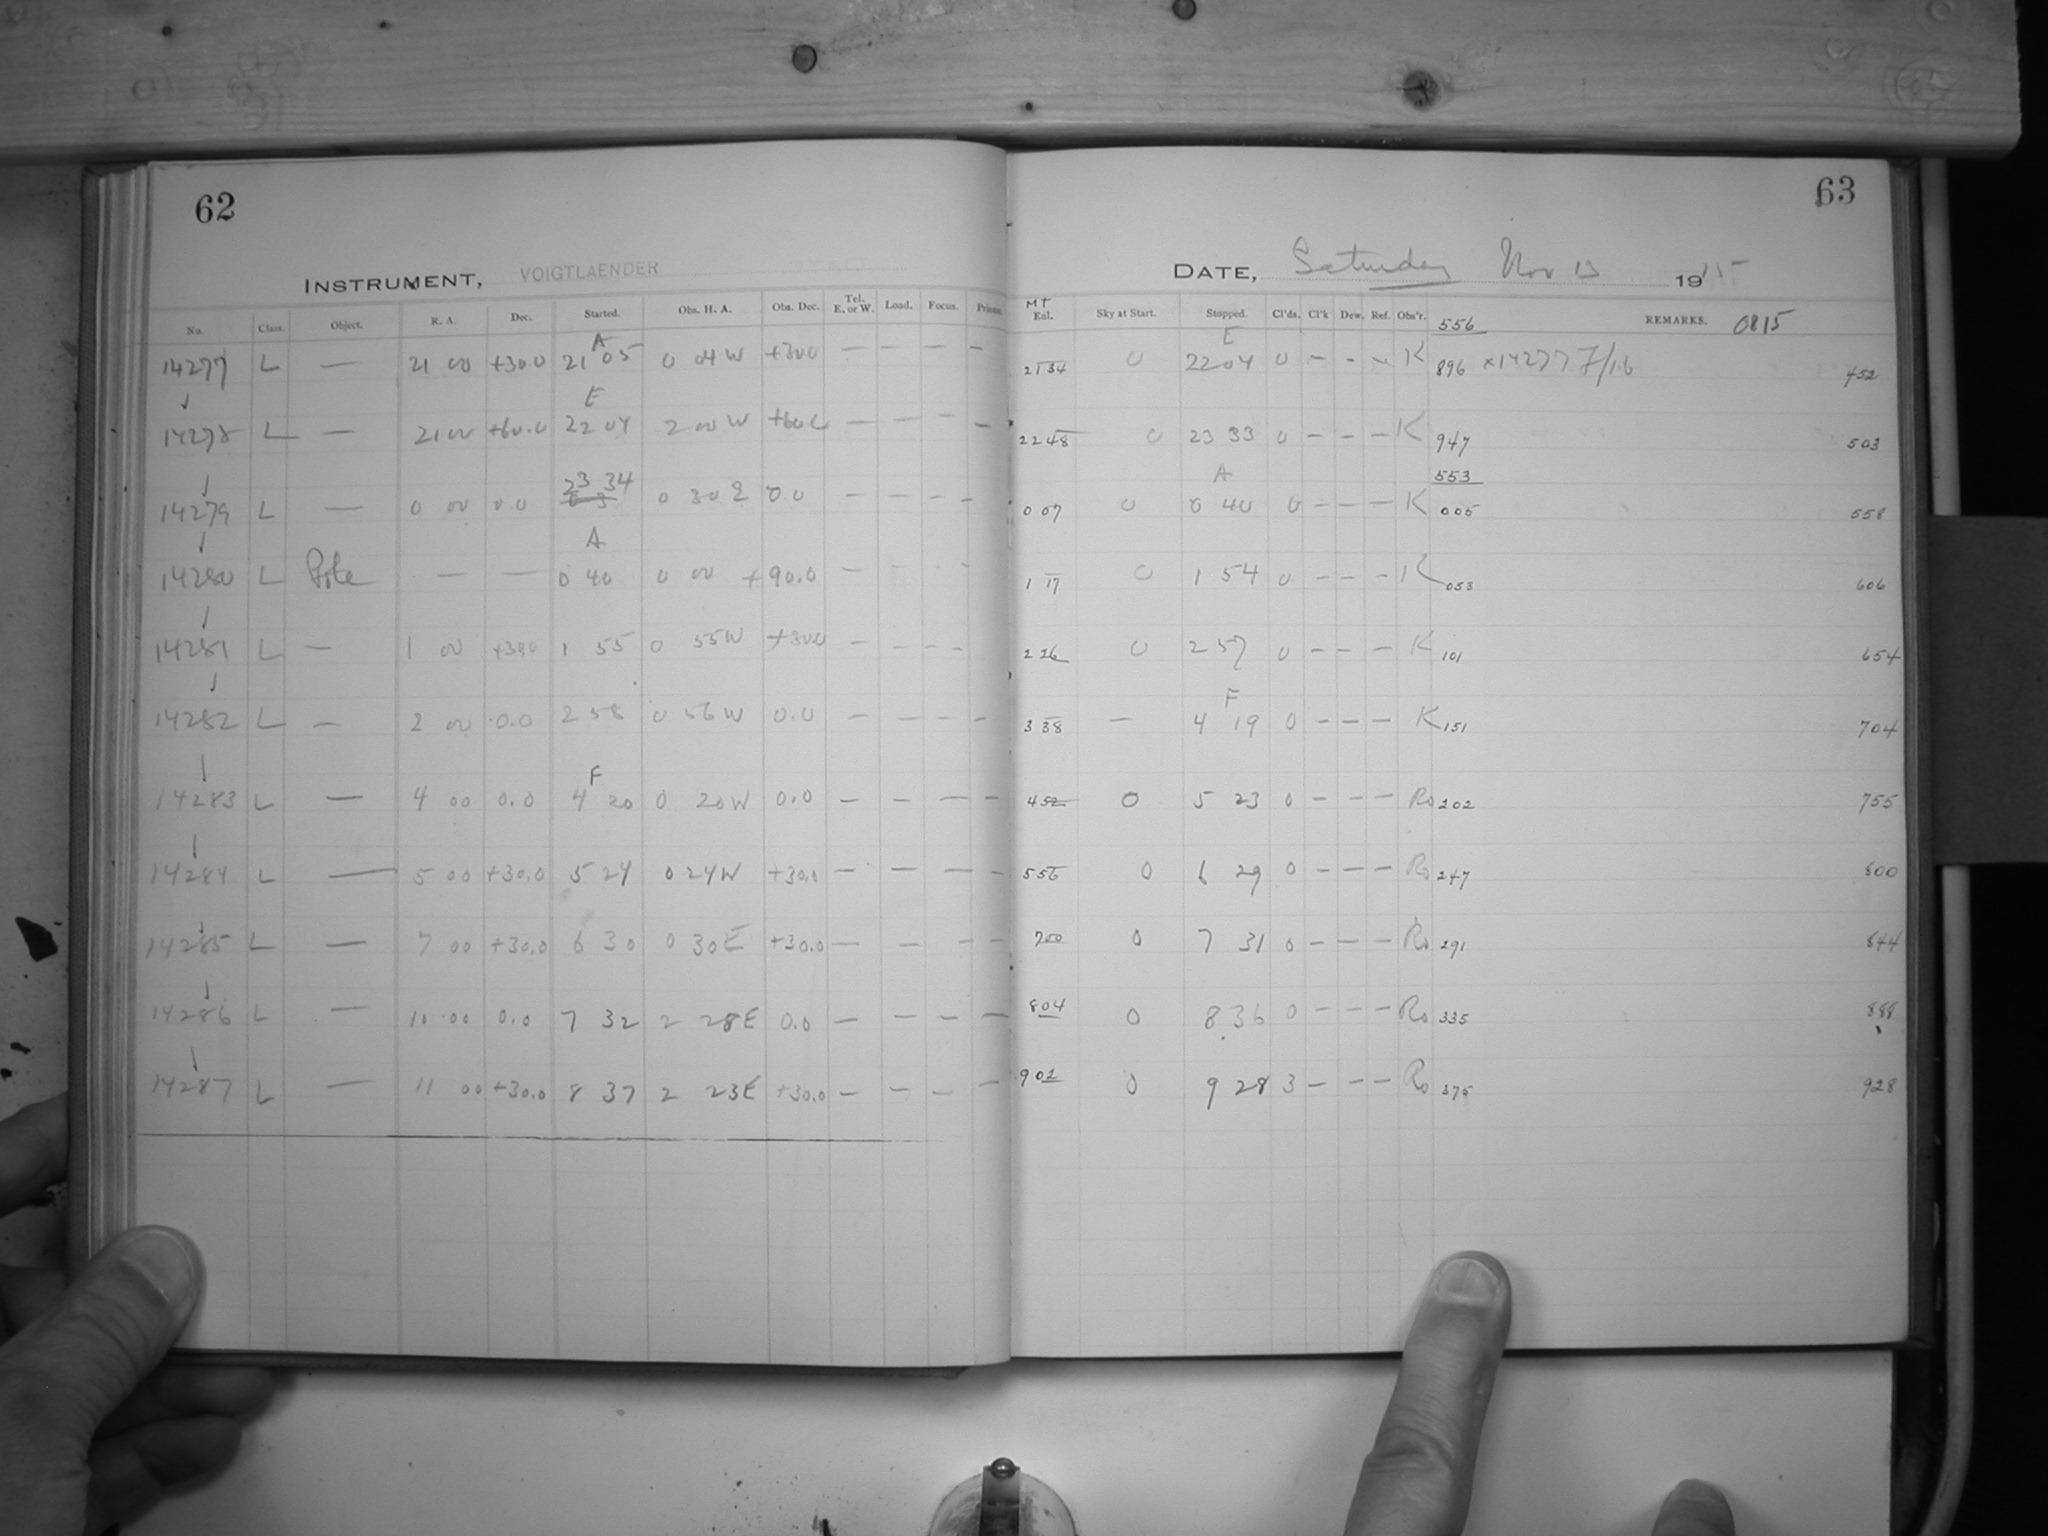 62
INSTRUMENT, VOIGTLAENDER
No. Class. Object. R. A. Dec. Started. Obs. H. A. Obs. Dec. Tel. E. or W. Load. Focus.
A
14277 L — 21 00 +30.0 21 05 0 04W +30.0 — — — —
E
14278 L — 21 00 +60.0 22 04 2 00 W +60.0 — — — —
23 34
14279 L — 0 00 0.0 0 30 E 0.0 — — — —
A
14280 L Pole — — 0 40 0 00 +90.0 — — — —
14281 L — 1 00 +30.0 1 55 0 55W +30.0 — — — —
14282 L — 2 00 0.0 2 58 0 56W 0.0 — — — —
F
14283 L — 4 00 0.0 4 20 0 20W 0.0 — — — —
14284 L — 5 00 +30.0 5 24 0 24W +30.0 — — — —
14285 L — 7 00 +30.0 6 30 0 30E +30.0 — — — —
14286 L — 10 00 0.0 7 32 2 28E 0.0 — — — —
14287 L — 11 00 +30.0 8 37 2 23E +30.0 — — — —
63
DATE, Saturday Nov 13 1915
MT
Enl. Sky at Start. Stopped. Cl'ds. Cl'k Dew. Ref. Obs'r. 556 REMARKS. 0815
E
2134 0 2204 0 — — — K 896 ×14277 F/1.6 452
2248 0 23 33 0 — — — K 947 503
A 553
0 07 0 0 40 0 — — — K 005 558
1 17 0 1 54 0 — — — K 053 606
2 26 0 2 57 0 — — — K 101 654
F
3 38 — 4 19 0 — — — K 151 704
4 52 0 5 23 0 — — — Ro 202 755
5 56 0 6 29 0 — — — Ro 247 800
700 0 7 31 0 — — — Ro 291 844
804 0 8 36 0 — — — Ro 335 888
902 0 9 28 3 — — — Ro 375 928